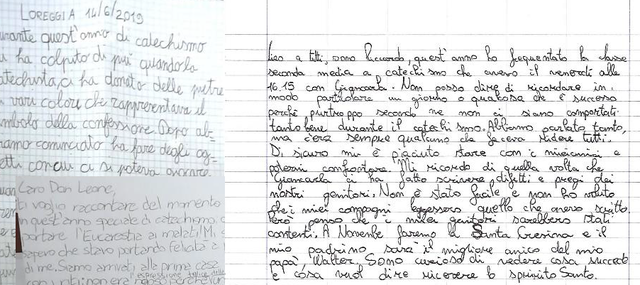 LOREGGIA 14/6/2019
urante quest'anno di catechismo
ha colpito di più quando la
atechista, ci ha donato delle pietre
vari colori che rappresentava il
mbolo della confessione. Dopo ab-
iamo cominciato ha fare degli og-
etti con cui si poteva giocare
Caro Don Leone,
ti voglio raccontare del momento
in quest'anno speciale di catechismo,
portare l'Eucarestia ai malati. Mi
sapevo che stavo portando felicità
di me. Siamo arrivati alla prima casa
Ciao a tutti, sono Riccardo, quest'anno ho frequentato la classe
seconda media a catechismo che avevo il venerdì alle
16.15 con Giancarla. Non posso dire di ricordare in
modo particolare un giorno o qualcosa che è successa
perché purtroppo secondo me non ci siamo comportati
tanto bene durante il catechismo. Abbiamo parlato tanto,
ma c'era sempre qualcuno che faceva ridere tutti.
Di sicuro mi è piaciuto stare con i miei amici e
potermi confrontare. Mi ricordo di quella volta che
Giancarla ci ha fatto scrivere i difetti e pregi dei
nostri genitori. Non è stato facile e non ho voluto
che i miei compagni leggessero quello che avevo scritto.
Però penso che i miei genitori sarebbero stati
contenti. A Novembre faremo la Santa Cresima e il
mio padrino sarà il migliore amico del mio
papà, Walter. Sono curioso di vedere cosa succede
e cosa vuol dire ricevere lo spirito Santo.